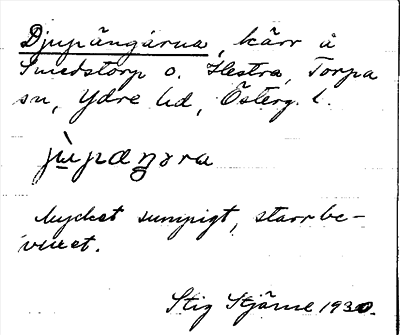 Djupängarna, kärr å
Smedstorp o. Hestra, Torpa
sn, Ydre hd, Österg. l.
jùpaŋɔra
Mycket sumpigt, starrbe-
vuxet.
Stig Stjärne 1930.